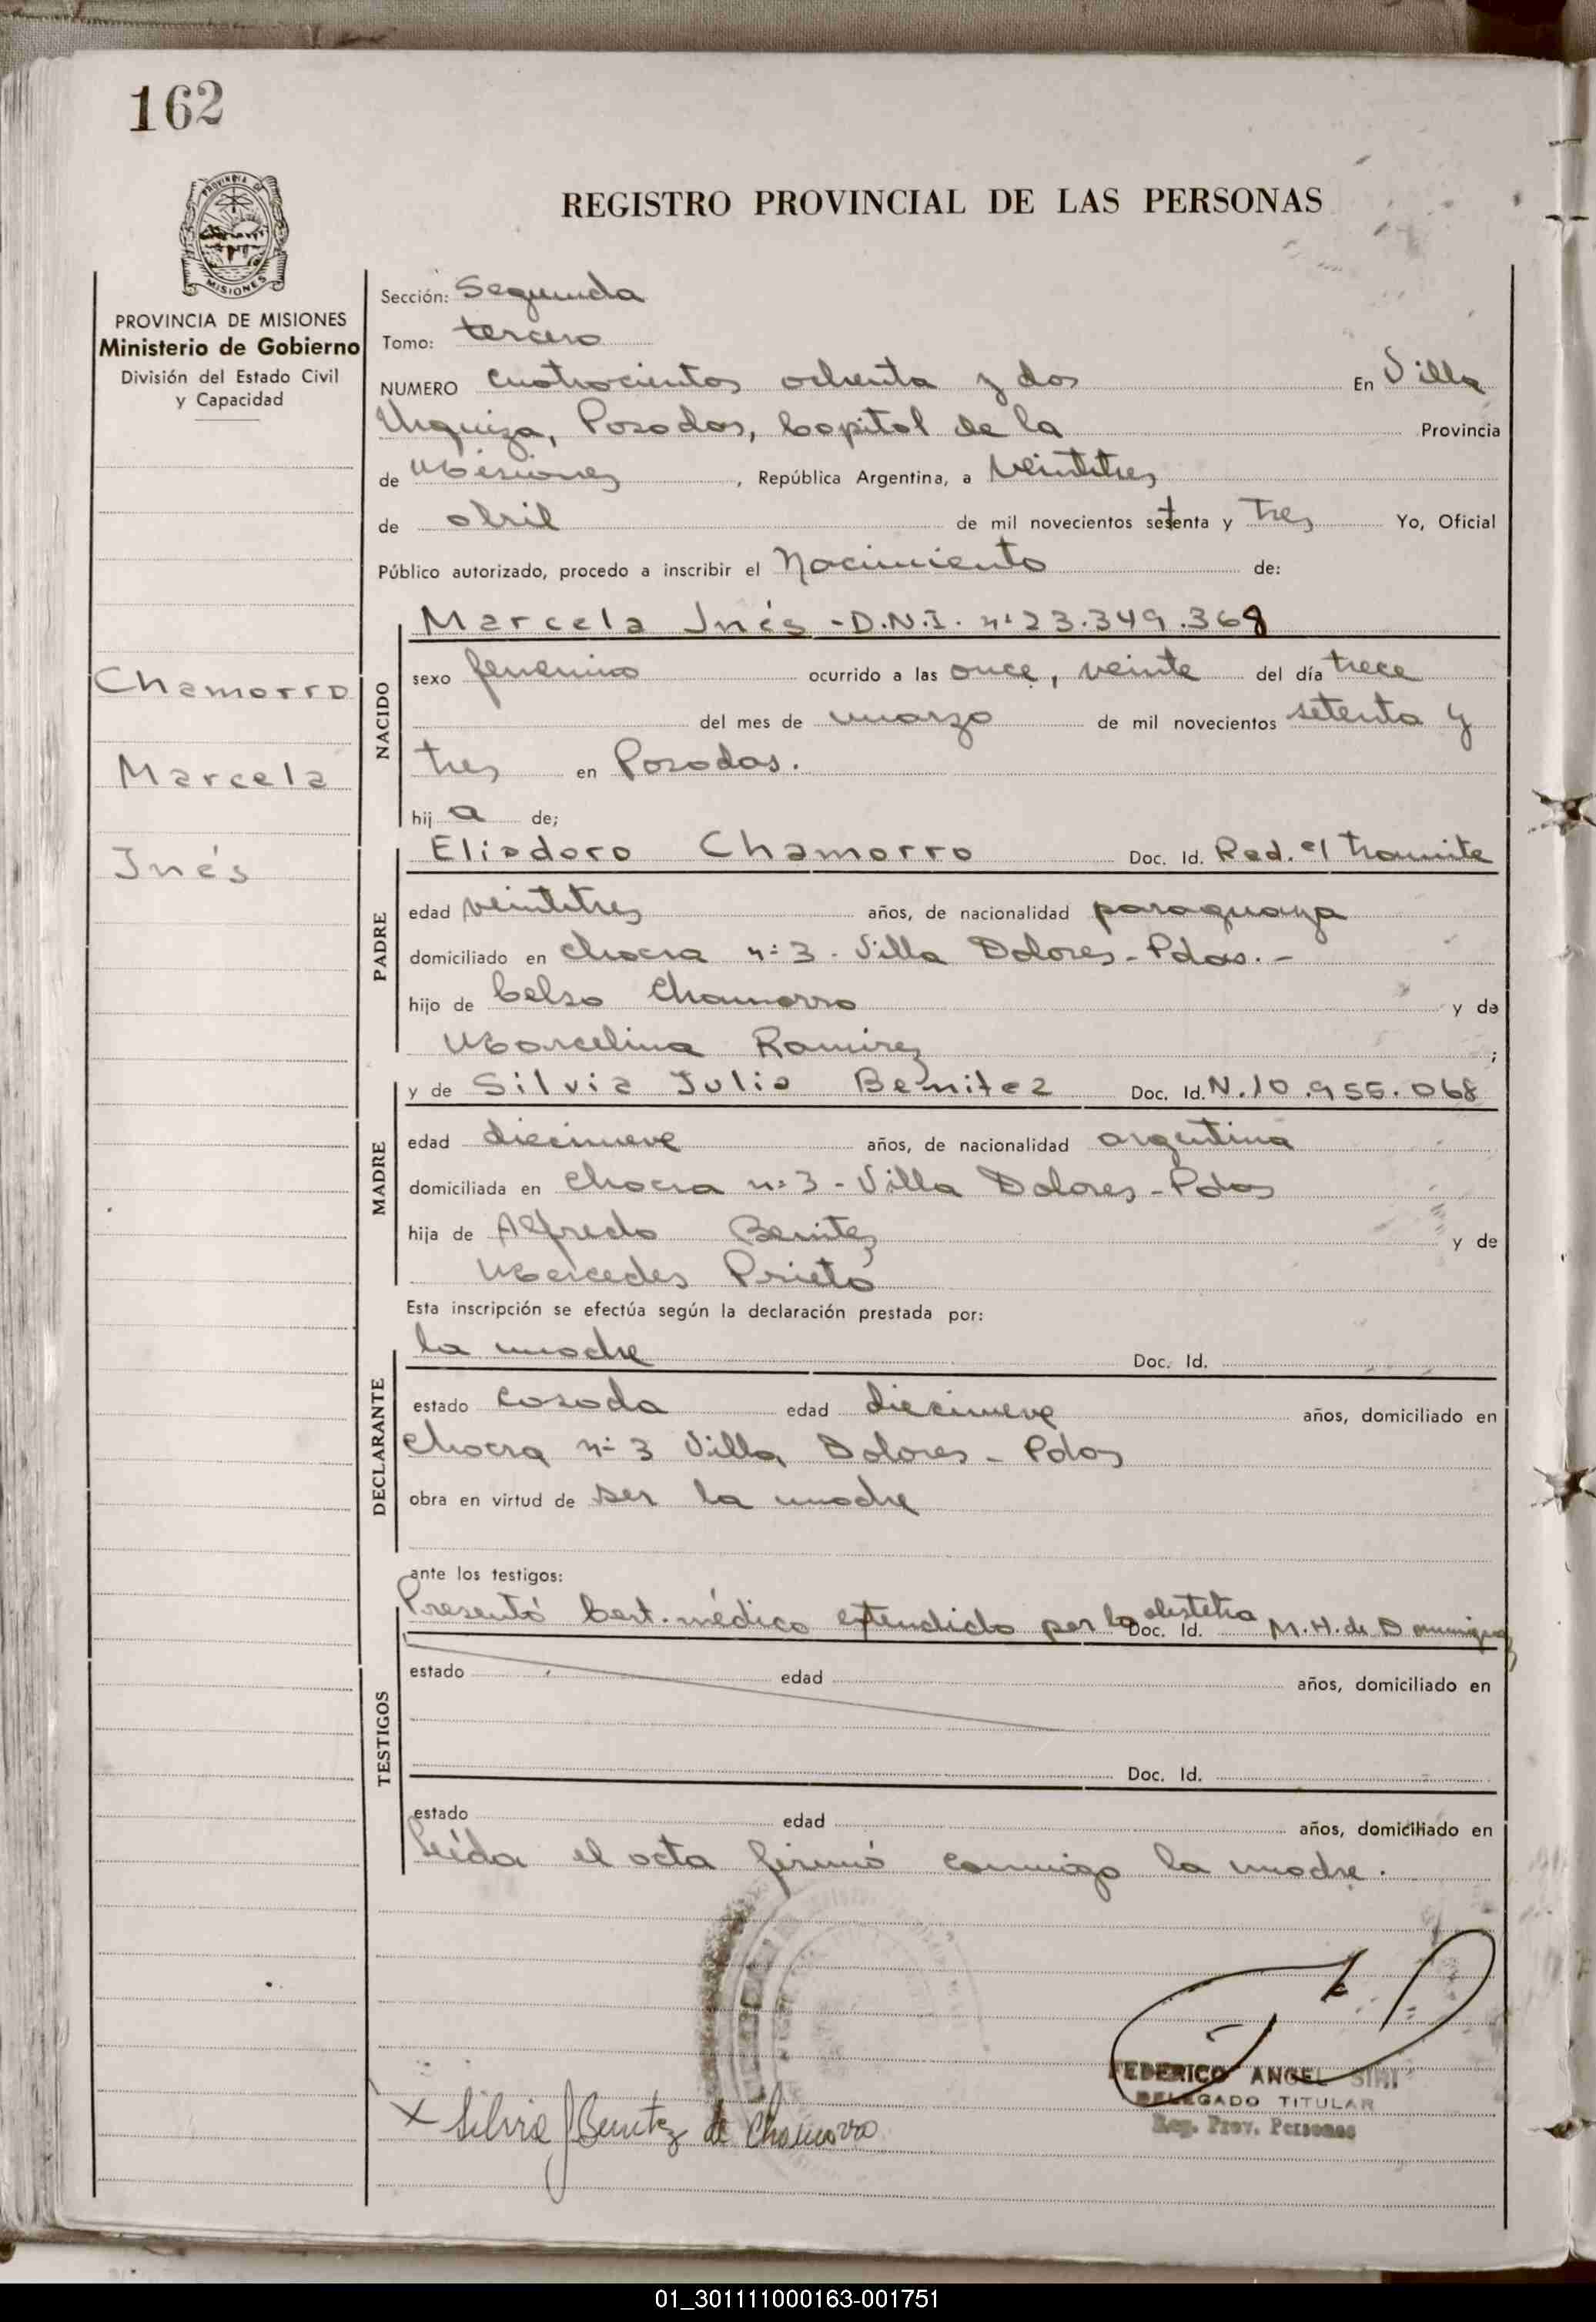 162
PROVINCIA DE
MISIONES
REGISTRO PROVINCIAL DE LAS PERSONAS
PROVINCIA DE MISIONES
Ministerio de Gobierno
División del Estado Civil
y Capacidad
Chamorro
Marcela
Inés
Sección: Segunda
Tomo: tercero
NUMERO cuatrocientos ochenta y dos En Villa
Urquiza, Posadas, Capital de la Provincia
de Misiones, República Argentina, a veintitres
de abril de mil novecientos setenta y tres Yo, Oficial
Público autorizado, procedo a inscribir el Nacimiento de:
NACIDO
Marcela Inés - D.N.I. nº 23.349.368
sexo femenino ocurrido a las once, veinte del día trece
del mes de marzo de mil novecientos setenta y
tres en Posadas.
hij a de;
PADRE
Eliodoro Chamorro Doc. Id. Rad. el tramite
edad veintitres años, de nacionalidad paraguaya
domiciliado en chacra nº 3 - Villa Dolores - Pdas. -
hijo de Celso Chamorro y de
Marcelina Ramirez ;
MADRE
y de Silvia Julia Benitez Doc. Id. N. 10.955.068
edad diecinueve años, de nacionalidad argentina
domiciliada en chacra nº 3 - Villa Dolores - Pdas
hija de Alfredo Benitez y de
Mercedes Prieto
Esta inscripción se efectúa según la declaración prestada por:
DECLARANTE
la madre Doc. Id.
estado casada edad diecinueve años, domiciliado en
chacra nº 3 Villa Dolores - Pdas
obra en virtud de ser la madre
ante los testigos:
TESTIGOS
Presentó Cert. médico extendido por la obstetra Doc. Id. M. H. de Dominguez
estado edad años, domiciliado en
Doc. Id.
estado edad años, domiciliado en
Leída el acta firmó conmigo la madre.
FEDERICO ANGEL SIMI
DELEGADO TITULAR
Reg. Prov. Personas
x Silvia J Benitez de Chamorro
01_301111000163-001751